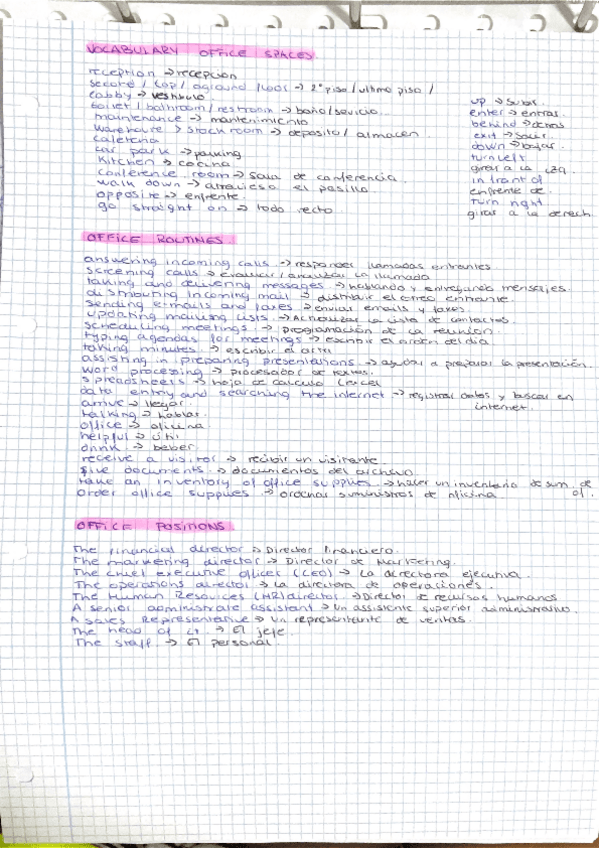 VOCABULARY OFFICE SPACES.
reception → recepción
second / top / ground floor → 2º piso / ultimo piso /
Lobby → vestíbulo.
toilet / bathroom / restroom → baño/servicio.
maintenance → mantenimiento
warehouse > stock room → deposito/ almacen
cafeteria
car park → parking
Kitchen → cocina
conference room → sala de conferencia.
walk down → atravieso el pasillo.
opposite → enfrente.
go straight on → todo recto
up → subir.
enter → entras.
behind → detras
exit → salir
down → bajar.
turn left
girar a la izq.
in front of
enfrente de.
Turn right
girar a la derech.
OFFICE ROUTINES.
answering incoming calls → responder llamadas entrantes
screening calls → evaluar / analizar la llamada
taking and delivering messages → hablando y entregando mensajes.
distributing incoming mail → distribuir el correo entrante.
sending e-mails and faxes → enviar emails y faxes.
updating mailing lists → Actualizar la lista de contactos.
scheduling meetings → programación de la reunion
typing agendas for meetings → escribir el orden del día
taking minutes → escribir el acta
assisting in preparing presentations → ayudar a preparar la presentación.
word processing → procesador de textos.
spreadsheets → hoja de calculo (excel
data entry and searching the internet → registrar datos y buscar en
internet.
arrive → llegar.
talking → hablar.
office → oficina
helpful → útil
drink → beber.
receive a visitor → recibir un visitante
file documents. → documentos del archivo
take an inventory of office supplies → hacer un inventario de sum. de
of.
order office supplies → ordenar suministros de oficina
OFFICE POSITIONS.
The financial director → Director financiero.
The marketing director → Director de Marketing.
The chief executive officer (CEO) → La directora ejecutiva.
The operations director → La directora de operaciones.
The Human Resources (HR) director → Director de recursos humanos
A senior administrate assistant → Un assistente superior administrativo.
A sales Representative → Un representante de ventas.
The head of → El jefe.
The staff → El personal.